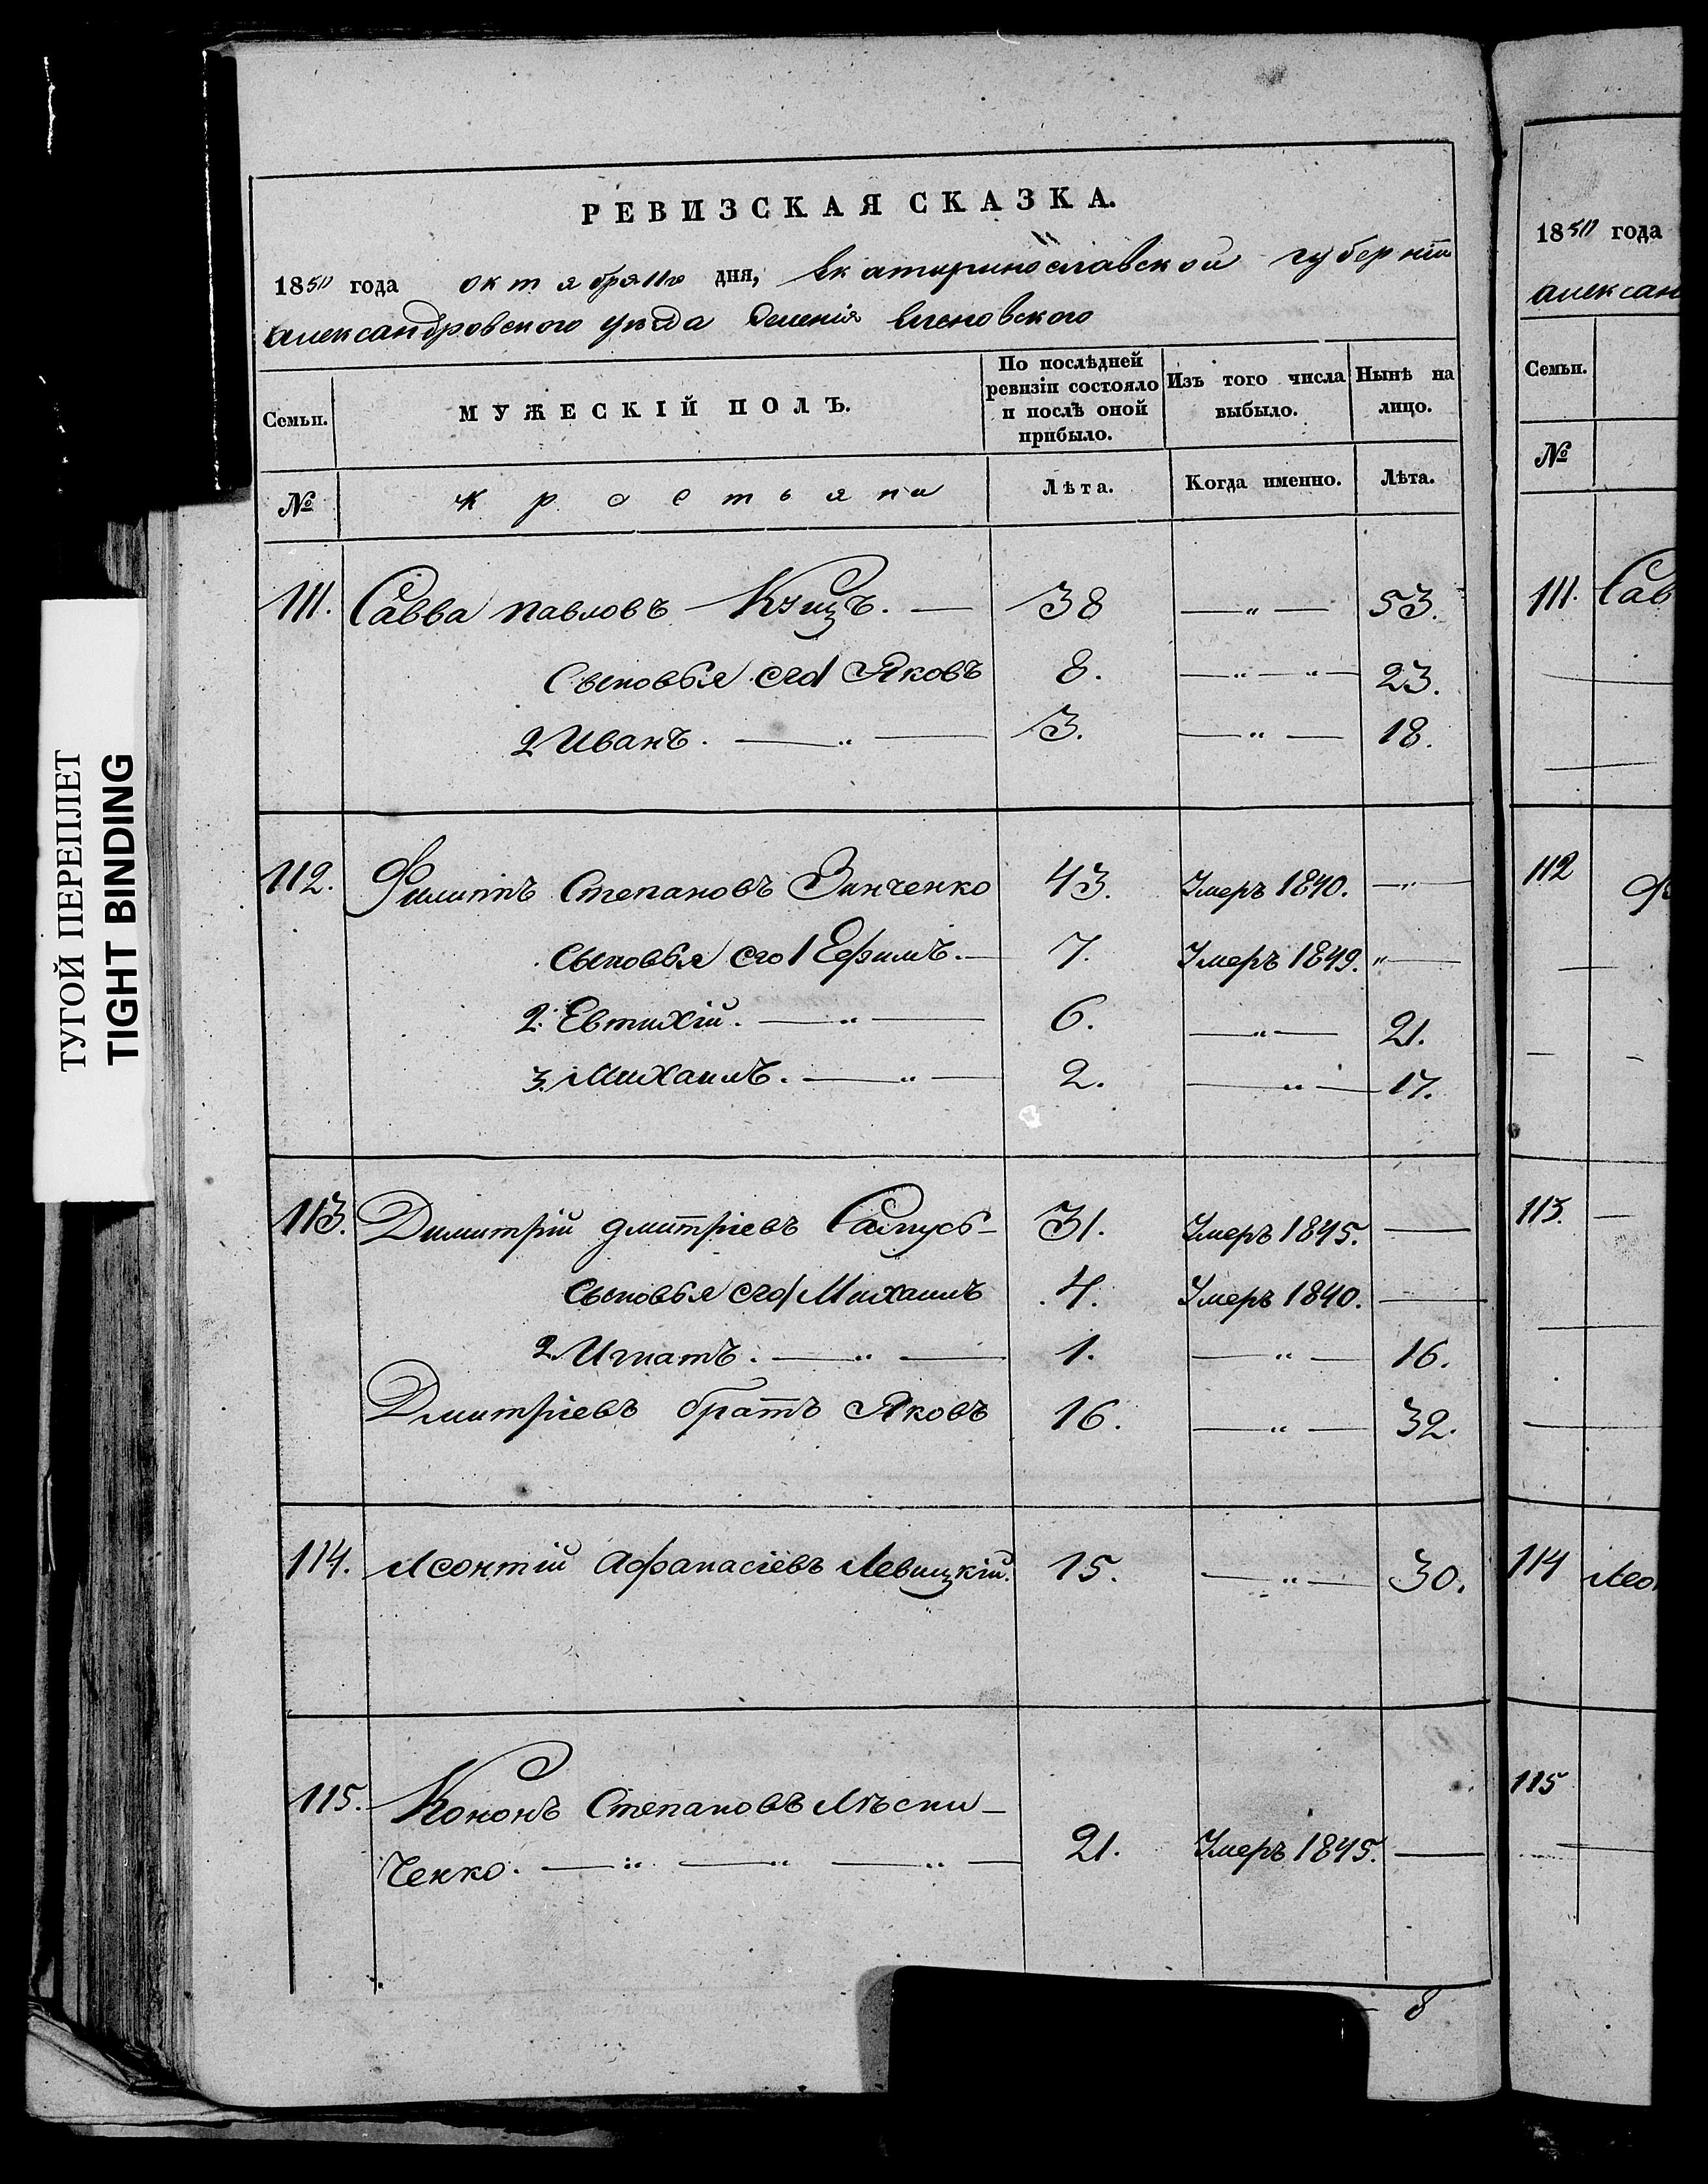 ТУГОЙ ПЕРЕПЛЕТ
TIGHT BINDING
РЕВИЗСКАЯ СКАЗКА.
1850 года октября 11го дня, Екатеринославской губерніи
Александровского уѣзда Селенія
Семьи.
МУЖЕСКІЙ ПОЛЪ.
По послѣдней ревизіи состояло и послѣ оной прибыло.
Изъ того числа выбыло.
Нынѣ на лицо.
№ Крестьяне Лѣта. Когда именно. Лѣта.
111. Савва Павловъ 38 —„— 53.
Сыновья его 1 Яковъ 8. —„—„— 23.
2 Иванъ. —„— 3. —„— 18.
112. Филиппъ Степановъ Зинченко 43. Умеръ 1840. —„—
Сыновья его 1 Ефимъ. — 7. Умеръ 1849. „—
2. Евтихій. —„— 6. —„— 21.
3. Михаилъ. —„— 2. —„— 17.
113. Димитрій Дмитріевъ Сапусь — 31. Умеръ 1845. —
Сыновья его 1 Михаилъ 4. Умеръ 1840. —
2. Игнатъ. —„— 1. —„— 16.
Дмитріевъ братъ Яковъ 16. —„— 32.
114. Леонтій Афанасіевъ Левицкій. 15. —„— 30.
115. Кононъ Степановъ Лѣсни-
ченко. —„—„—„— 21. Умеръ 1845. —
8
1850 года
Алексан
Семьи.
№
111. Сав
112
113. —
114 Лео
115